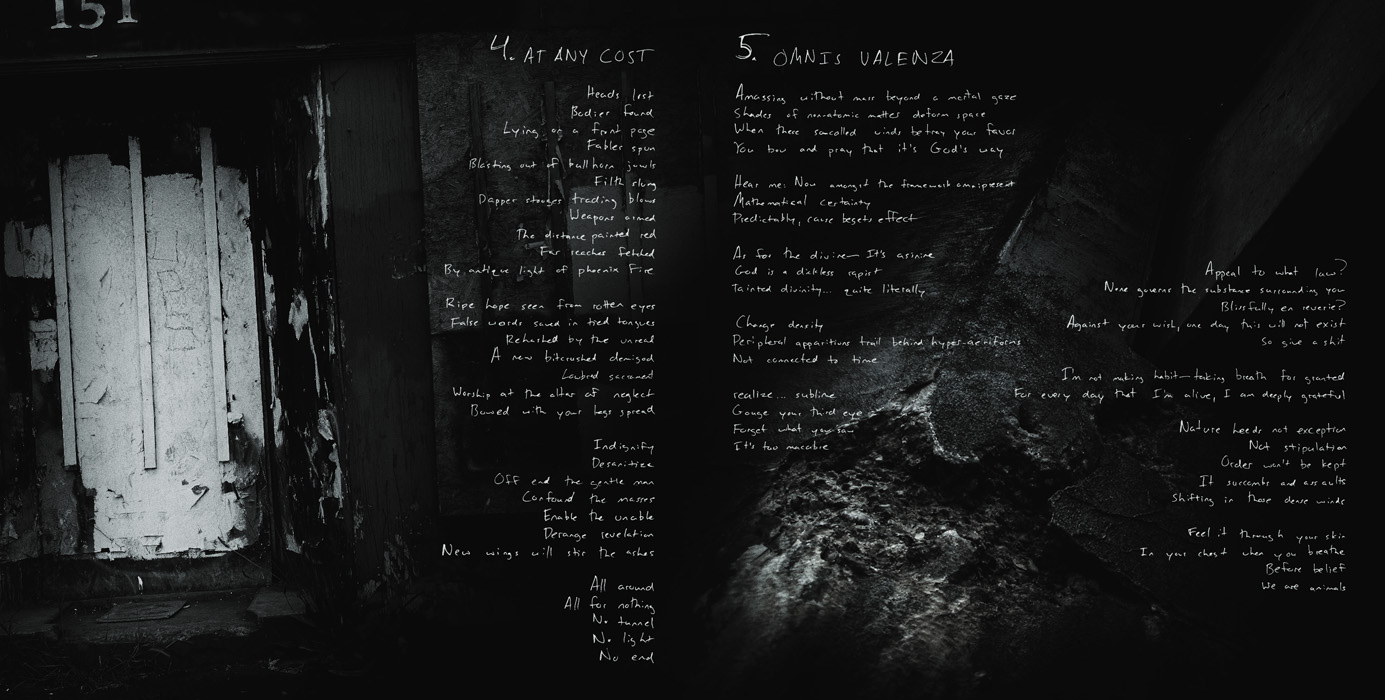 151
4. AT ANY COST
Heads lost
Bodies found
Lying on a front page
Fables spun
Blasting out of bullhorn jowls
Filth slung
Dapper stooges trading blows
Weapons armed
The distance painted red
Far reaches fetched
By antique light of phoenix fire
Ripe hope seen from rotten eyes
False words saved in tied tongues
Rehashed by the unread
A new bitcrushed demigod
Lowbred sacrament
Worship at the altar of neglect
Bowed with your legs spread
Indignify
Desanitize
Off end the gentle man
Confound the masses
Enable the unable
Derange revelation
New wings will stir the ashes
All around
All for nothing
No tunnel
No light
No end
5. OMNIS VALENZA
Amassing without mass beyond a mortal gaze
Shades of nonatomic matter deform space
When these socalled winds betray your favor
You bow and pray that it's God's way
Hear me: Now amongst the framework omnipresent
Mathematical certainty
Predictably, cause begets effect
As for the divine— It's asinine
God is a dickless rapist
Tainted divinity... quite literally
Change density
Peripheral apparitions trail behind hypes-aeriforms
Not connected to time
realize... sublime
Gouge your third eye
Forget what you saw
It's too macabre
Appeal to what law?
None governs the substance surrounding you
Blissfully en reverie?
Against your wish, one day this will not exist
So give a shit
I'm not making habit—taking breath for granted
For every day that I'm alive, I am deeply grateful
Nature heeds not exception
Not stipulation
Order won't be kept
It succumbs and assaults
Shifting in those dense winds
Feel it through your skin
In your chest when you breathe
Before belief
We are animals